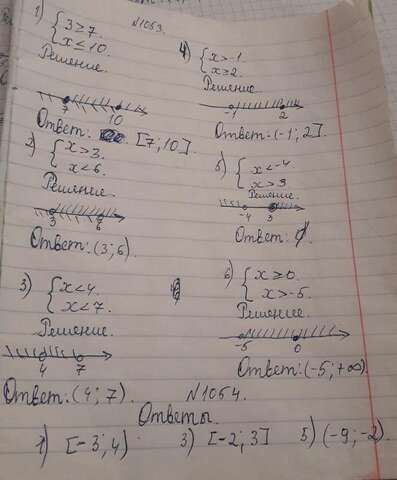 №1053.
1) { 3 ≥ 7.
x ≤ 10.
Решение.
7 10
Ответ: [7; 10].
2) { x > 3.
x < 6.
Решение.
3 6
Ответ: (3; 6).
3) { x < 4.
x < 7.
Решение.
4 7
Ответ: (4; 7).
4) { x > -1.
x ≥ 2.
Решение
-1 2
Ответ: (-1; 2].
5) { x < -4
x > 3
Решение.
-4 3
Ответ: ∅.
6) { x ≥ 0.
x > -5.
Решение.
-5 0
Ответ: (-5; +∞)
№1054.
Ответы.
1) [-3; 4) 3) [-2; 3] 5) (-9; -2).